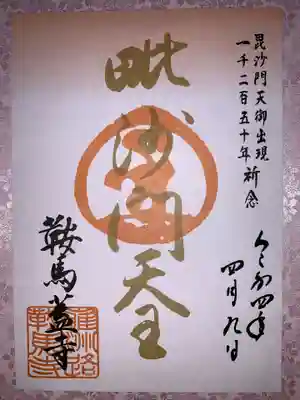 毘沙門天御出現
一千二百五十年祈念
令和四年
四月九日
毗沙門天王
鞍馬蓋寺